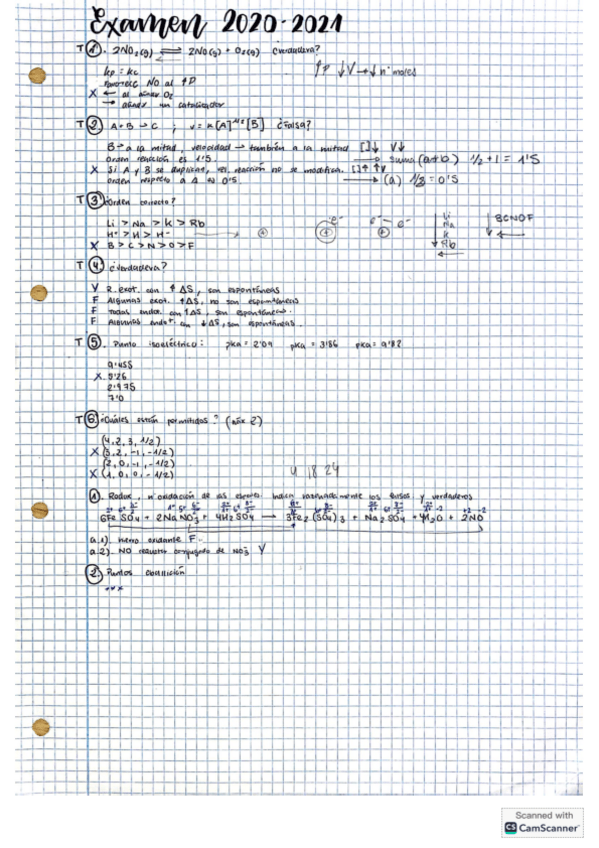 Examen 2020-2021
T ①. 2NO₂(g) ⇌ 2NO(g) + O₂(g) ¿verdadera?
↑P ↓V → ↓ nº moles
kp = kc
Favorece NO al ↑P
X ← al añadir O₂
→ añadir un catalizador
T ②. A + B → C ; v = k[A]^1/2 [B] ¿Falsa?
B → a la mitad, velocidad → también a la mitad []↓ V↓
Orden reacción es 1'5. → suma (a+b) 1/2 + 1 = 1'5
X Si A y B se duplican, reacción no se modifica. []↑ ↑V
orden respecto a A es 0'5. → (a) 1/2 = 0'5
T ③ ¿Orden correcto?
Li > Na > K > Rb
H⁺ > H > H⁻
X B > C > N > O > F
e⁻ e⁻ e⁻
Li
Na
K
Rb
BCNOF
T ④. ¿Verdadera?
V R. exot. con ↑ΔS, son espontáneas
F Algunas exot. ↑ΔS, no son espontáneas
F Todas endot. con ↑ΔS, son espontáneas.
F Algunas endot. con ↓ΔS, son espontáneas.
T ⑤. Punto isoeléctrico: pka = 2'09 pka = 3'86 pka = 9'82
X
2'975
7'0
T ⑥. ¿Cuáles están permitidos? (máx 2)
(4, 2, 3, 1/2)
X (3, 2, -1, -1/2)
(2, 0, -1, -1/2)
X (1, 0, 0, -1/2)
4 18 24
①. Redox, nº oxidación de las especies. Indica razonadamente los falsos y verdaderos
6FeSO₄ + 2NaNO₃ + 4H₂SO₄ → 3Fe₂(SO₄)₃ + Na₂SO₄ + 4H₂O + 2NO
a.1). Hierro oxidante F.
a.2). NO reductor conjugado de NO₃⁻ V
②. Puntos ebullición
Scanned with
CS CamScanner